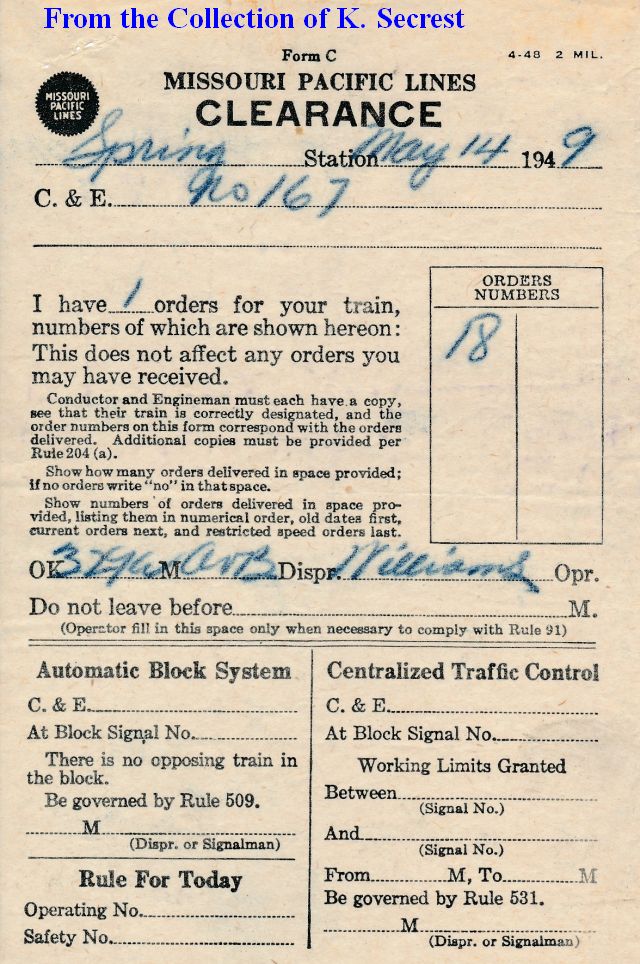 From the Collection of K. Secrest
Form C
4-48 2 MIL.
MISSOURI PACIFIC LINES
MISSOURI PACIFIC LINES
CLEARANCE
Spring Station May 14 1949
C. & E. No 167
ORDERS NUMBERS
18
I have 1 orders for your train,
numbers of which are shown hereon:
This does not affect any orders you
may have received.
Conductor and Engineman must each have a copy,
see that their train is correctly designated, and the
order numbers on this form correspond with the orders
delivered. Additional copies must be provided per
Rule 204 (a).
Show how many orders delivered in space provided;
if no orders write "no" in that space.
Show numbers of orders delivered in space pro-
vided, listing them in numerical order, old dates first,
current orders next, and restricted speed orders last.
OK M Dispr. Williams Opr.
Do not leave before M.
(Operator fill in this space only when necessary to comply with Rule 91)
Automatic Block System
C. & E.
At Block Signal No.
There is no opposing train in
the block.
Be governed by Rule 509.
M
(Dispr. or Signalman)
Rule For Today
Operating No.
Safety No.
Centralized Traffic Control
C. & E.
At Block Signal No.
Working Limits Granted
Between
(Signal No.)
And
(Signal No.)
From M, To M
Be governed by Rule 531.
M
(Dispr. or Signalman)